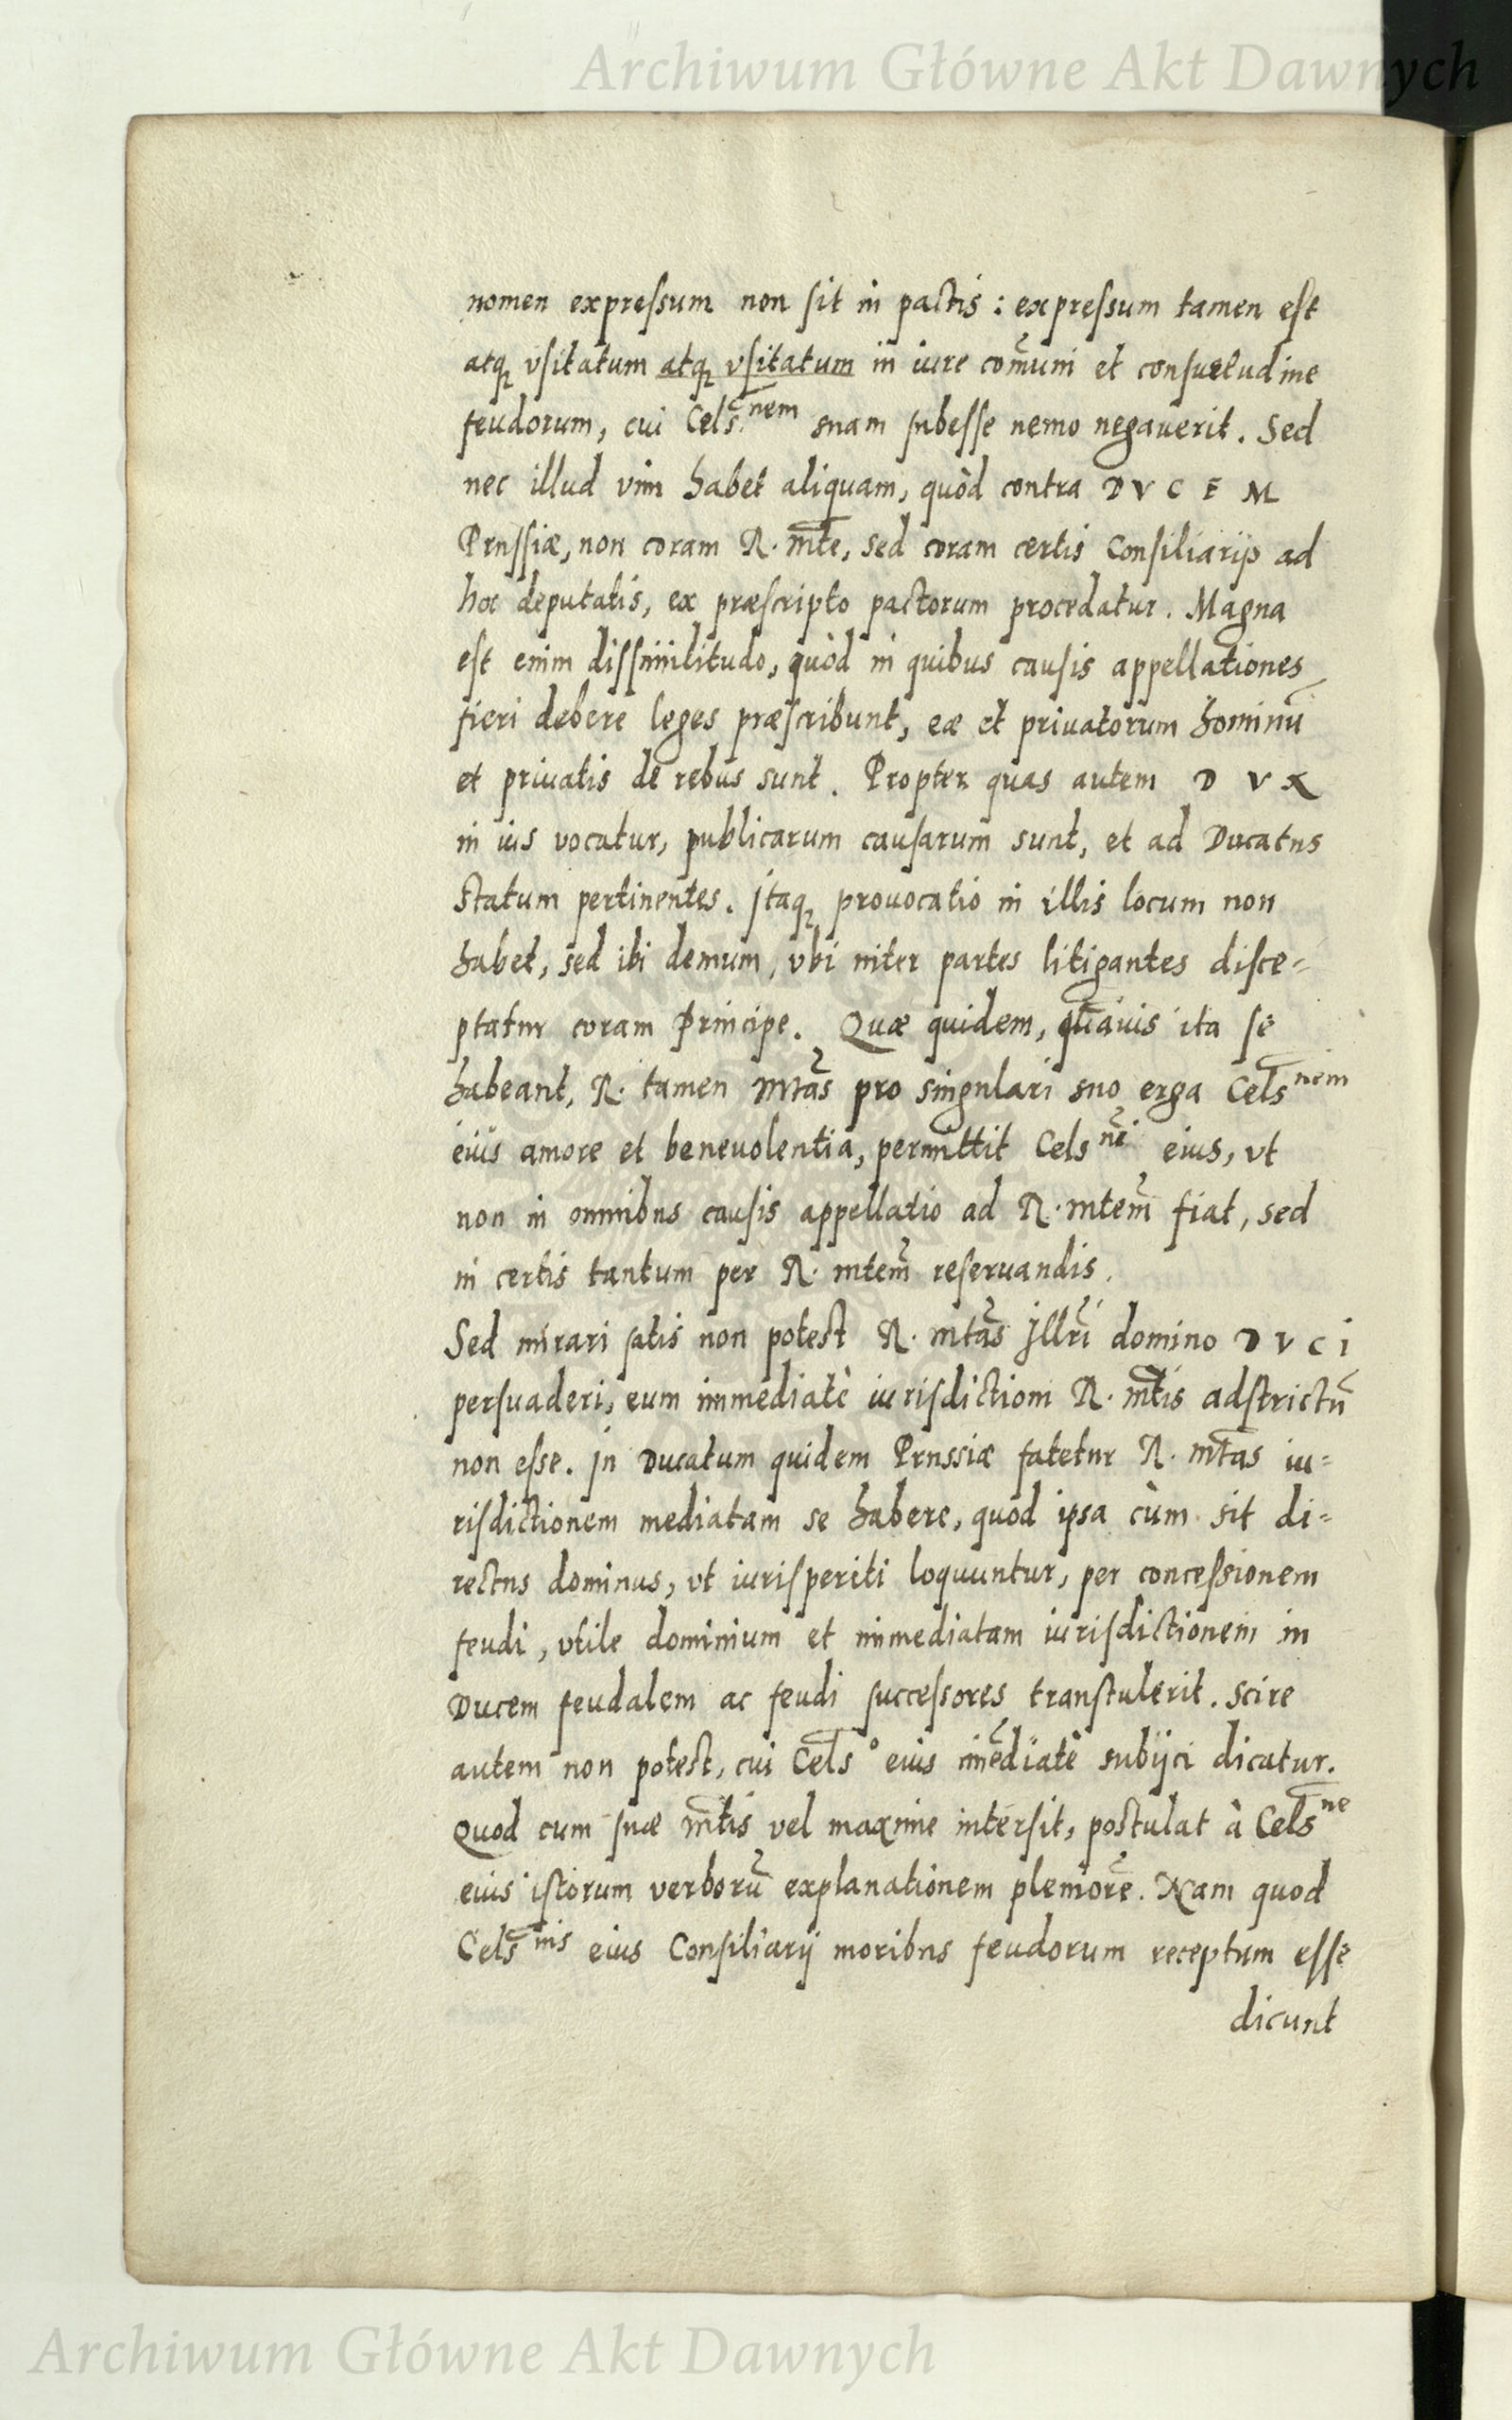 Archiwum Główne Akt Dawnych
nomen expressum non sit in pactis: expressum tamen est
atq; vsitatum atq; vsitatum in iure com̃uni et consuetudine
feudorum, cui Cels.nem suam subesse nemo negauerit. Sed
nec illud vim habet aliquam, quòd contra D V C E M
Prussiæ, non coram R. Mte, sed coram certis Consiliarijs ad
hoc deputatis, ex præscripto pactorum procedatur. Magna
est enim dissimilitudo, quòd in quibus causis appellationes
fieri debere leges præscribunt, eæ et priuatorum hominũ
et priuatis de rebus sunt. Propter quas autem D V X
in ius vocatur, publicarum causarum sunt, et ad Ducatus
statum pertinentes. Itaq; prouocatio in illis locum non
habet, sed ibi demum, vbi inter partes litigantes disce-
ptatur coram Principe. Quæ quidem, quãuis ita se
habeant, R. tamen Mtas pro singulari suo erga Celsnem
eius amore et beneuolentia, permittit Celsni eius, vt
non in omnibus causis appellatio ad R. Mtem fiat, sed
in certis tantum per R. Mtem reseruandis.
Sed mirari satis non potest R. Mtas Illri domino D V C I
persuaderi, eum immediatè iurisdictioni R. Mtis adstrictũ
non esse. In Ducatum quidem Prussiæ fatetur R. Mtas iu-
risdictionem mediatam se habere, quòd ipsa cùm sit di-
rectus dominus, vt iurisperiti loquuntur, per concessionem
feudi, vtile dominium et immediatam iurisdictionem in
Ducem feudalem ac feudi successores transtulerit. Scire
autem non potest, cui Celso eius im̃ediatè subijci dicatur.
Quod cum suæ Mtis vel maxime intersit, postulat à Celsne
eius istorum verborũ explanationem pleniorẽ. Nam quod
Celsnis eius Consiliarij moribus feudorum receptum esse
dicunt
Archiwum Główne Akt Dawnych